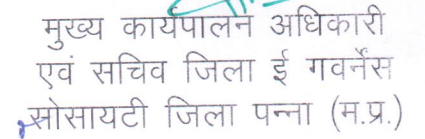 मुख्य कार्यपालन अधिकारी
एवं सचिव जिला ई गवर्नेंस
सोसायटी जिला पन्ना (म.प्र.)